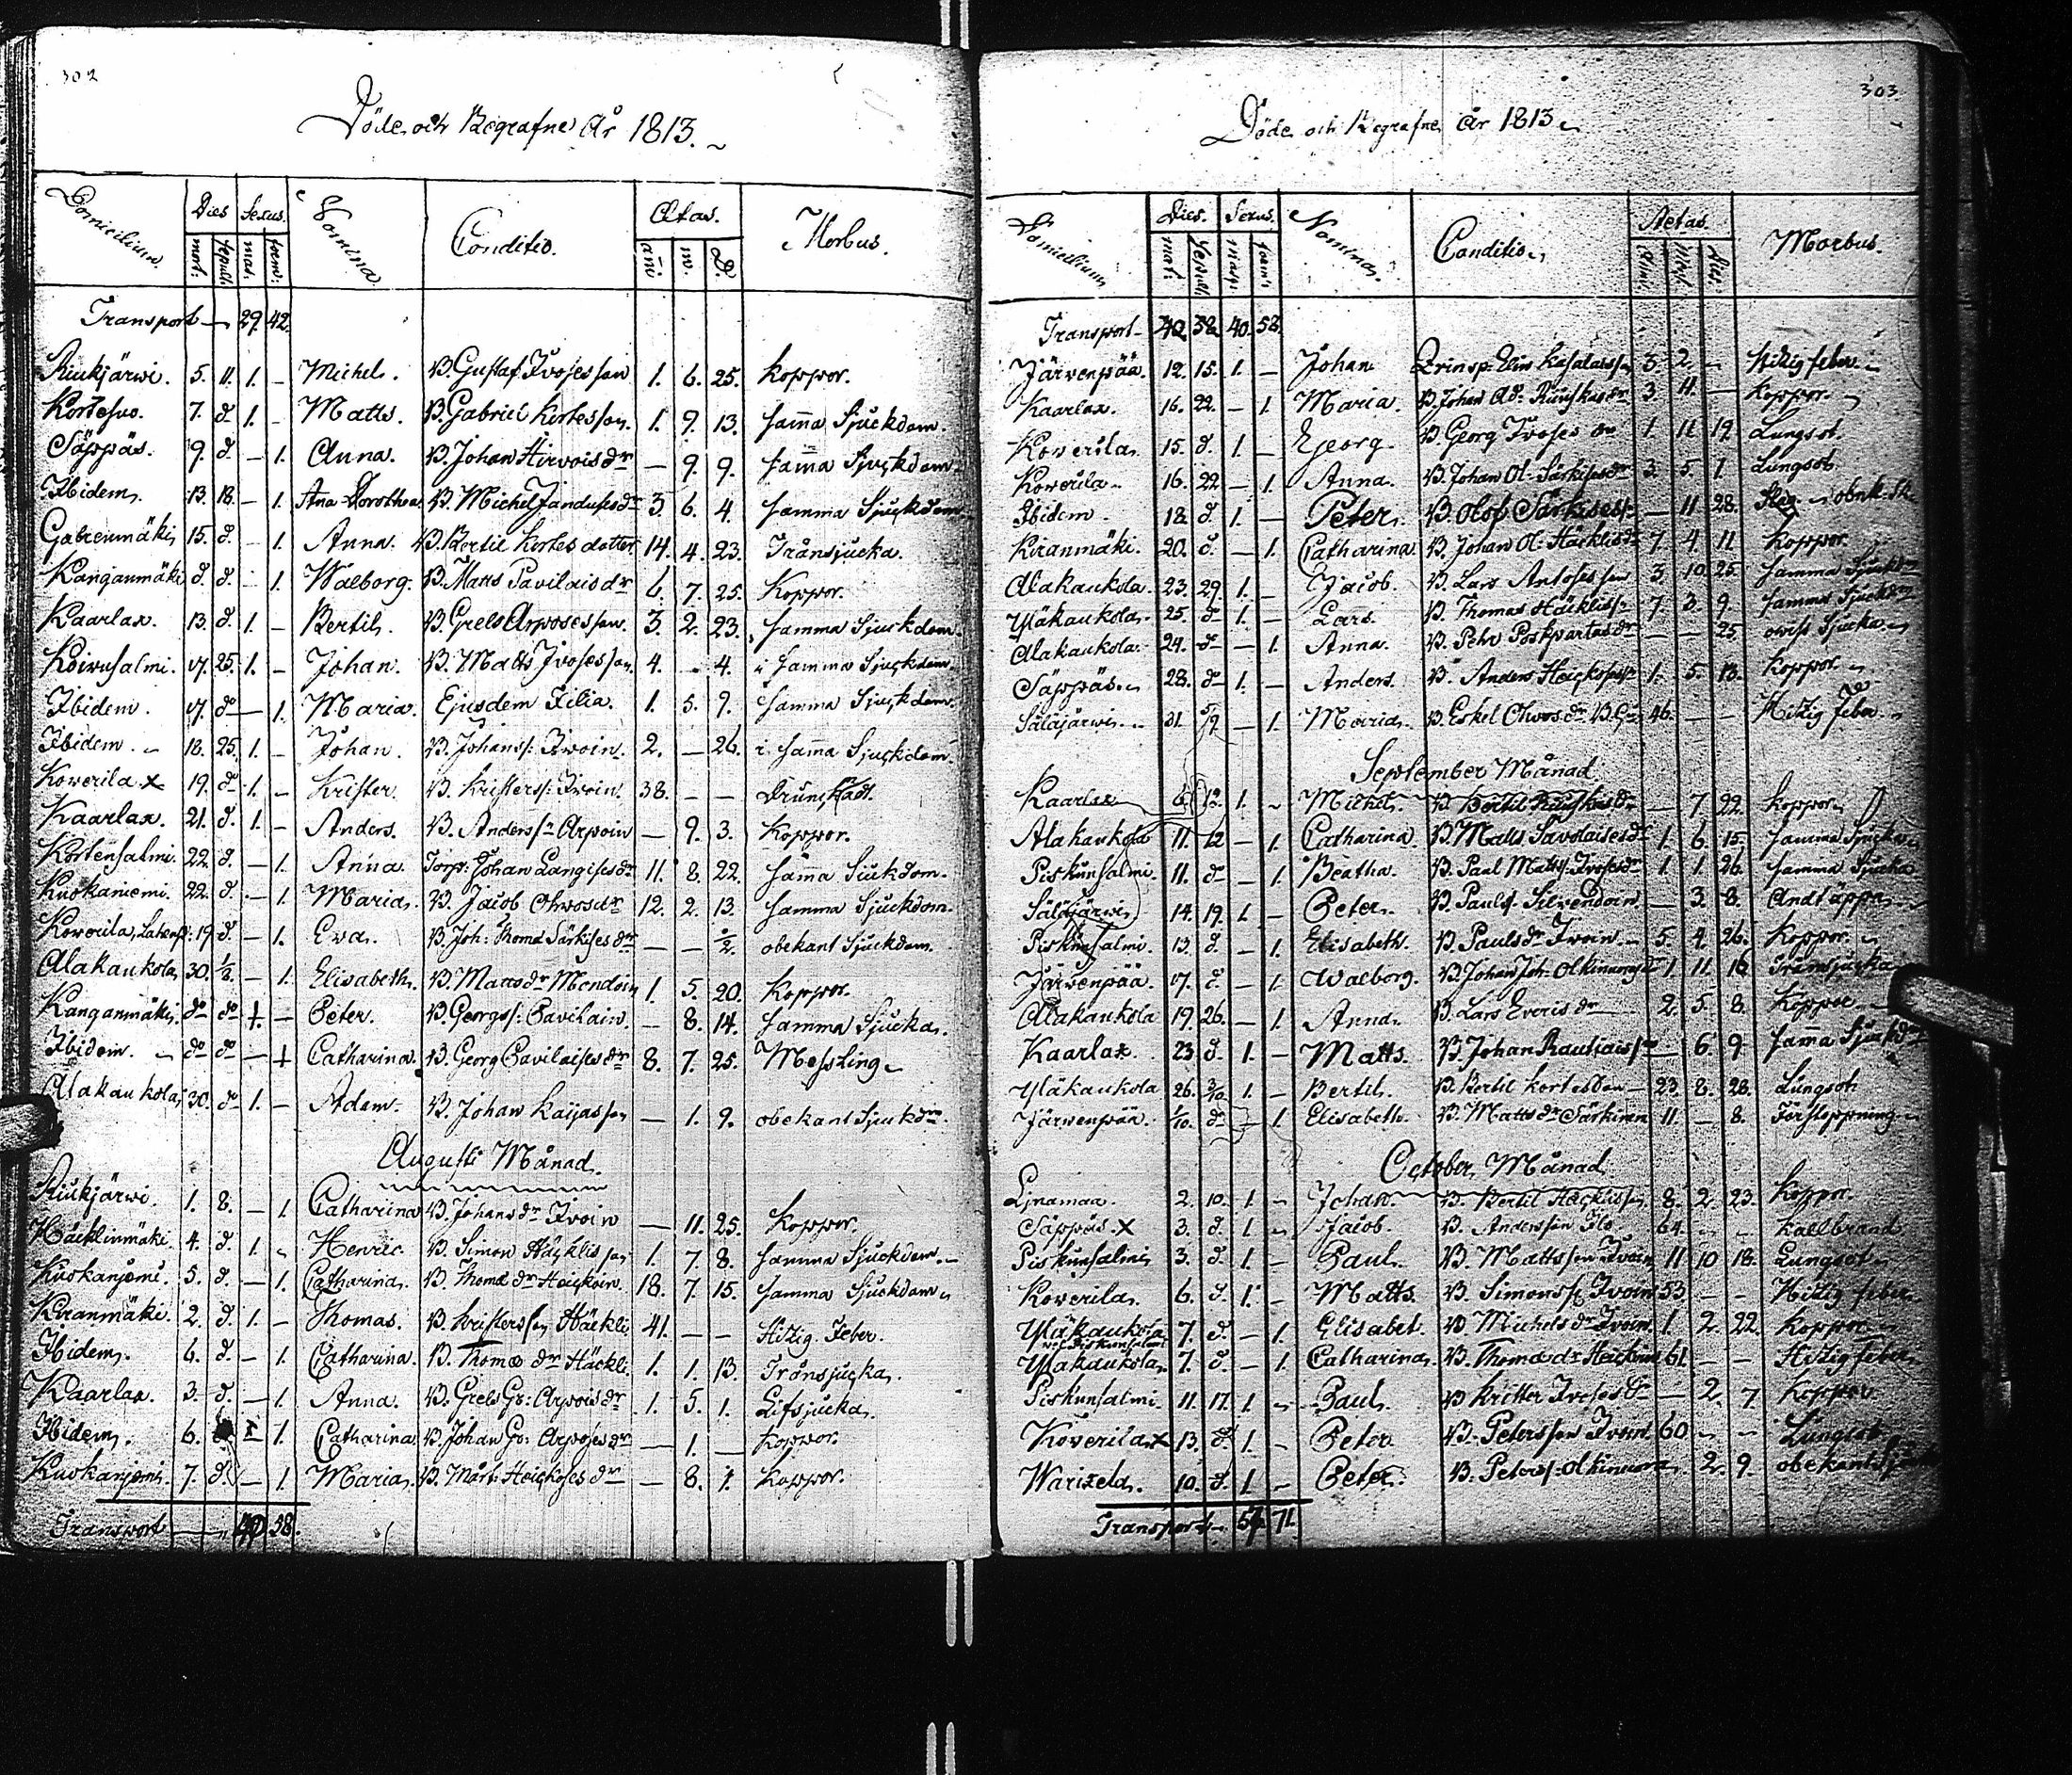 302
Döde och Begrafne År 1813.
Domicilium. Dies Sexus. Nomina Conditio. Ætas. Morbus.
mort: sepult. mas: foem: añi. m. D.
Transport 29. 42.
Riukjärwi. 5. 11. 1. - Michel. B. Gustaf Ivoses son 1. 6. 25. Koppor.
Kortesuo. 7. d. 1. - Matts. B. Gabriel Kortesson. 1. 9. 13. samma Sjuckdom.
Säppäs. 9. d. - 1. Anna. B. Johan Hirvois dr — 9. 9. samma Sjuckdom.
Ibidem. 13. 18. - 1. Ana Dorothea B. Michel 3. 6. 4. samma Sjuckdom
15. d. - 1. Anna. B. Bertil Kortes dotter 14. 4. 23. Trånsjucka.
Kanganmäki d. d. - 1. Walborg. B. Matts Pavilais dr 6. 7. 25. Koppor.
Kaarlax. 13. d. 1. - Bertil. B. Grels Arposes son. 3. 2. 23. samma Sjuckdom.
Koirusalmi. 17. 25. 1. - Johan. B. Matts Ivoses son 4. - 4. i samma Sjuckdom.
Ibidem. 17. do — 1. Maria. Ejusdem Filia. 1. 5. 9. samma Sjuckdom.
Ibidem. 18. 25. 1. - Johan. B. Johans s: Ivoin. 2. — 26. i samma Sjuckdom.
Kowerila x 19. do 1. - Krister. B. Kristers s: Ivoin. 38. — — Drunknadt.
Kaarlax. 21. d. 1. - Anders. B. Anders sn Arpoin — 9. 3. Koppor.
Kortensalmi. 22. d. — 1. Anna Torp: Johan Langises dr 11. 8. 22. samma Siukdom.
Kuokaniemi. 22. d. - 1. Maria. B. Jacob Ohvos dr 12. 2. 13. samma Sjuckdom.
Kowerila, 19 d. — 1. Eva. B. Joh: Thoms Särkises dr — — ½ obekant Sjuckdom.
Alakaukola 30. 1/8 — 1. Elisabeth. B. Matts dr Mondoin 1. 5. 20. Koppor.
Kanganmäki. do do 1. — Peter. B. Georgs s: Pavilain. — 8. 14. samma Sjucka.
Ibidem. do do — 1 Catharina. B. Georg Pavilaises dr 8. 7. 25. Messling
Alakaukola, 30. do 1. — Adam. B. Johan Kaijas son — 1. 9. obekant Sjuckdm.
Augusti Månad.
Riukjärwi. 1. 8. — 1. Catharina B. Johans dr Ivoin — 11. 25. Koppor.
Häcklinmäki. 4. d. 1. - Henric. B. Simon Häcklis son 1. 7. 8. samma Sjuckdom.
Kuokanjemi. 5. d. — 1. Catharina. B. Thoms dr Heickoin. 18. 7. 15. samma Sjuckdom
Kiranmäki. 2. d. 1. - Thomas. B. Kristers son Häckli 41. — — Hitzig Feber.
Ibidem. 6. d. - 1. Catharina. B. Thomæ dr Häckli. 1. 1. 13. Trånsjucka.
Kaarlax. 3. d. — 1. Anna. B. Grels Gr: Arpois dr 1. 5. 1. Lifsjucka.
Ibidem. 6. — 1. Catharina. B. Johan Gr: Arposes dr — 1. — Koppor.
Kuokanjemi. 7. d. — 1. Maria. B. Mårt: Heickoses dr — 8. 1. Koppor.
Transport — 40 58.
303
Döde och Begrafne År 1813
Domicilium Dies. Sexus. Nomina. Conditio. Aetas. Morbus.
Transport - 40. 58. 40. 58.
Järvenpää. 12. 15. 1. — Johan 3. 2. — Hitzig feber.
Kaarlax. 16. 22. — 1. Maria. B. Johan Ad: 3. 11. — Koppor.
Kowerila. 15. d. 1. — Georg. B. Georg Ivoses 1. 11. 19. Lungsot.
Kowerila 16. 22. — 1. Anna. B. Johan Ol: Särkises dr 3. 5. 1. Lungsot.
Ibidem. 18. d. 1. — Peter. B. Olof Särkises s: — 11 28.
Kiranmäki. 20. d. — 1. Catharina B. Johan Ol: Häcklis dr 7. 4. 11 Koppor
Alakaukola. 23. 29. 1. — Jacob. B. Lars Antoses son 3. 10. 25. samma Sjuckd
Yläkaukola. 25. d 1. — Lars. B. Thomas Häcklis s: 7. 3. 9. samma Sjuckdm
Alakaukola. 24. d — 1. Anna. B. Pehr Poskpartas dr — — 25. owiss Sjucka.
Säppäs. 28. do 1. — Anders. B. Anders Heickoses s: 1. 5. 18. Koppor.
Säläjärwi. 31. 5/9 — 1. Maria. B. Eskel Ohvos dr 46. — — Hitzig feber.
September Månad.
Kaarlax 6. 12 1. - Michel. B. Bertil — 7 22. Koppor.
Alakaukola 11. 12 — 1. Catharina. B. Matts Savolaises dr 1. 6. 15. samma Sjucka
Piskunsalmi. 11. do — 1. Beatha. B. Paul Matts s: Ivoses dr 1. 1. 26. samma Sjucka
Säläjärwi 14. 19. 1 - Peter. B. Pauls s: Silvendoin — 3. 8. Andtäppa
Piskunsalmi. 13. d. — 1. Elisabeth. B. Pauls dr Ivoin. 5. 4. 26. Koppor.
Järvenpää. 17. d. — 1. Walborg. B. Johan Joh: Olkinuoras dr 1. 11. 16 Trånsjucka
Alakaukola 19. 26. — 1. Anna. B. Lars Everis dr 2. 5. 8. Koppor
Kaarlax. 23 d. 1. — Matts. B. Johan Rautiais son — 6. 9. samma Sjuckdm
Yläkaukola 26. 3/10 1. - Bertil. B. Bertil Kortes son 23. 8. 28. Lungsot
Järwenpää. 1/10. do - 1. Elisabeth. B. Matts dr Särkinen 11. — 8. Förstoppning
October Månad
Linamaa. 2. 10. 1. - Johan. B. Bertil Häcklis son 8. 2. 23. Koppor.
Säppäs. X 3. d. 1 - Jacob. B. Andersson Ilo 64. - - Kallbrand
Piskunsalmi 3. d. 1 - Paul. B. Mattsson Ivoin 11 10 18. Lungsot
Kowerila. 6. d. 1. - Matts. B. Simons s: Ivoin 53 — — Hitzig feber
Yläkaukola 7. d. — 1. Elisabet. B. Michels dr Ivoin. 1. 2. 22. Koppor
Yläkaukola 7. d. — 1. Catharina. B. Thoms dr Heickoin 61. — — Hitzig feber
Piskunsalmi. 11. 17. 1. - Paul. B. Krister Ivoses s: — 2. 7 Koppor
Kowerila x 13. d. 1. - Peter. B. Petersson Ivoin. 60 - - Lungsot
Warixela. 10. d. 1. - Peter. B. Peters s: Olkinuora 2. 9. obekant
Transport 57. 71.